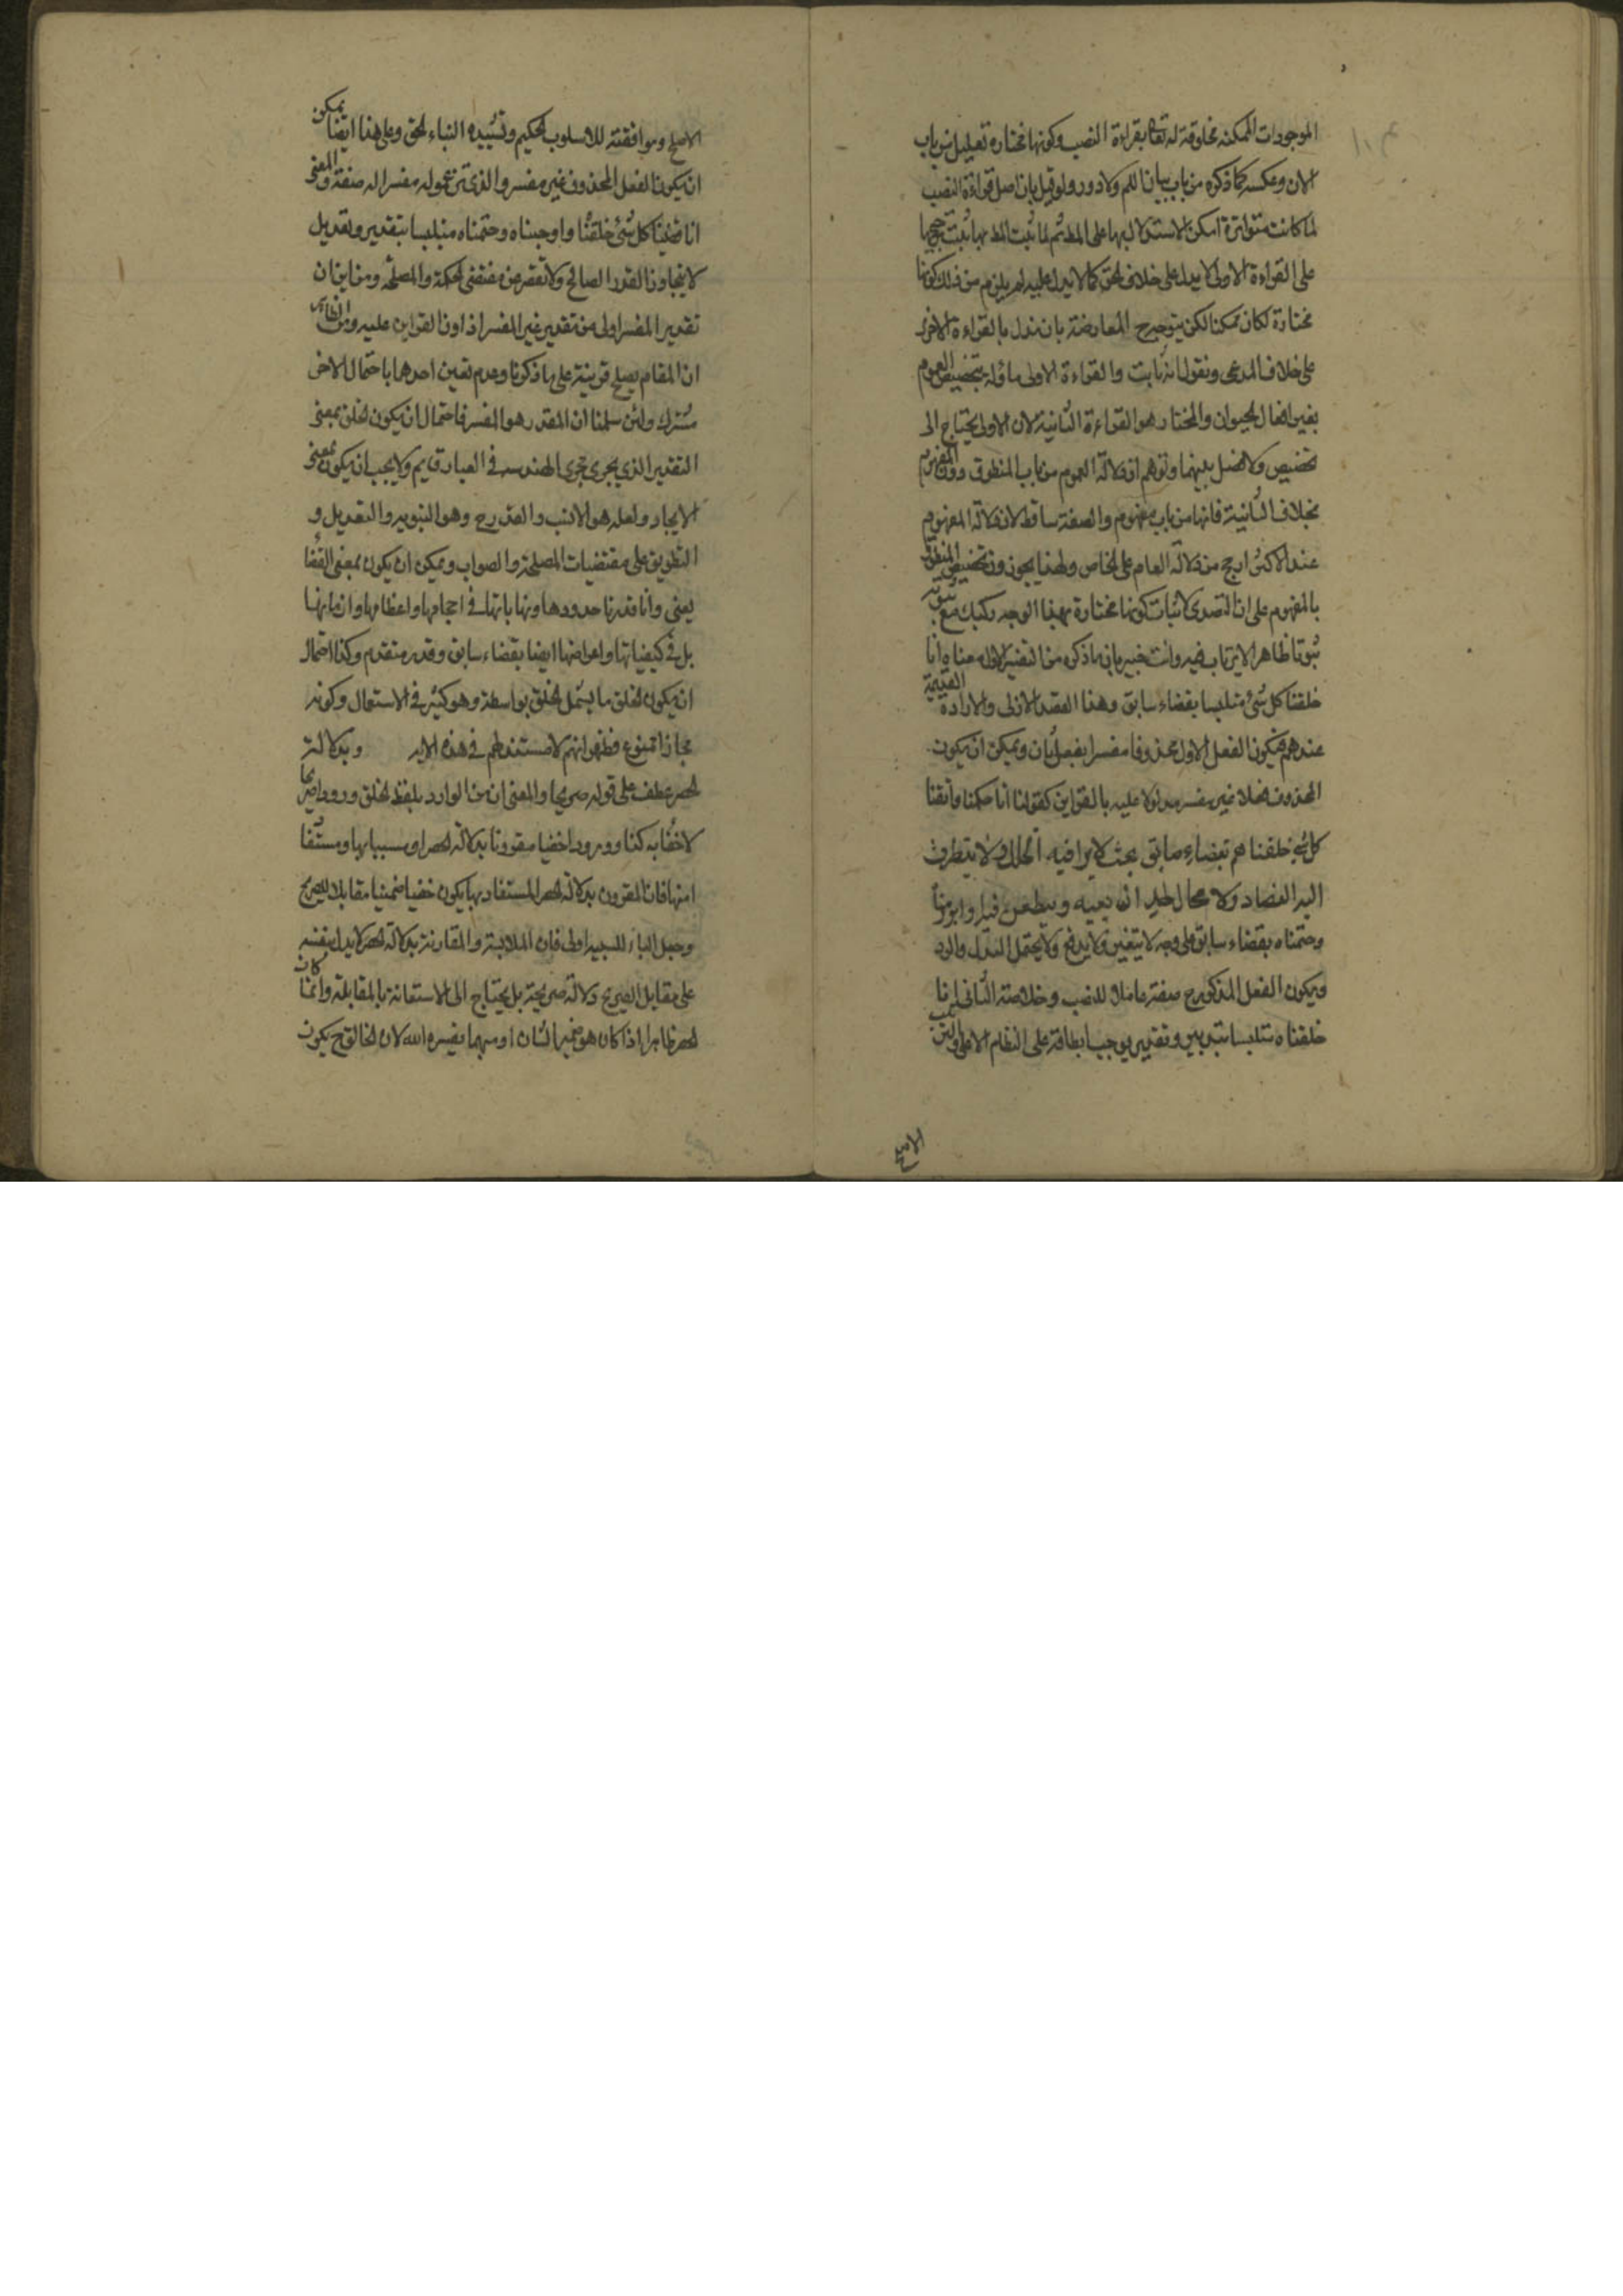 الموجودات الممكنه مخلوقة له تعالى بقراءة النصب وكونها مختارة تعليل من باب
الان وعكسه كما ذكره من باب بيان اللم ولا دور ولو قيل بان اصل قراءة النصب
لما كانت متواترة امكن الاستدلال بها على المط ثم لما ثبت المط بها ثبت ترجيحها
على القراءة الاولى لا يدل على خلاف الحق كما لا يدل عليه لم يلزم من ذلك كونها
مختارة لكان ممكنا لكن يتوجه المعارضة بان نستدل بالقراءة الاخرى
على خلاف المدعى ونقول انه ثابت والقراءة الاولى مأولة بتخصيص العموم
بغير افعال الحيوان والمختار هو القراءة الثانية لان الاولى يحتاج الى
تخصيص ولا فضل بينهما وتوهم ان دلالة العموم من باب المنطوق دون المفهوم
بخلاف الثانية فانها من باب مفهوم والصفة ساقط لان دلالة المفهوم
عند الاكثر ارجح من دلالة العام على الخاص ولهذا يجوزون تخصيص المنطوق
بالمفهوم على ان التصدى لاثبات كونها مختارة بهذا الوجه ركيك مع ثبوته
ثبوتا ظاهرا لا يرتاب فيه وانت خبير بان ما ذكره من التفسير الاول معناه انا
خلقنا كل شئ متلبسا بقضاء سابق وهذا القصد الازلى والارادة القديمة
عندهم فيكون الفعل الاول محذوفا مفسرا بفعل ثان ويمكن ان يكون
المحذوف فعلا غير مفسر مدلولا عليه بالقراين كقولنا انا حكمنا واتقنا
كل شئ خلقناهم بقضاء سابق بحيث لا يوافيه الخلل ولا يتطرق
اليه الفساد ولا مجال لخلل ان يعيبه ويطعن فيه وابرمنا
وحتمناه بقضاء سابق على وجه لا يتغير ولا يدفع ولا يحتمل التبدل والرد
ويكون الفعل المذكور ح صفة عاملا للنصب وخلاصة الثانى انا
خلقناه متلبسا بتدبير وتقدير يوجب ابطاقه على النظام الاعلى والترتيب
الاصلح
الاصلح وموافقته للاسلوب الحكيم وتشييده البناء الحق وعلى هذا ايضا يمكن
ان يكون الفعل المحذوف غير مفسر والذى تزعمون مفسرا له صفة والمعنى
انا قضينا كل شئ خلقنا واوجبناه وحتمناه متلبسا بتقدير وتعديل
لا يتجاوز القدر الصالح ولا تقصر عن مقتضى الحكمة والمصلحة ومن اين ان
تقدير المفسر اولى من تقدير غير المفسر اذا دل القراين عليه ومن الظاهر
ان المقام يصلح قرينة على ما ذكرنا وعدم تعين احدهما باحتمال الاخر
مشترك ولئن سلمنا ان المقدر هو المفسر فاحتمال ان يكون الخلق بمعنى
التقدير الذى يجرى مجرى الهندسه فى العبارة قايم ولا يجب ان يكون بمعنى
الايجاد ولعله هو الانسب والقدر ح وهو التسويه والتعديل و
التطويق على مقتضيات المصلحة والصواب ويمكن ان يكون بمعنى القضا
يعنى وانا قدرنا حدودها ونهاياتها فى احجامها واعظامها وازمانها
بل فى كيفياتها واعراضها ايضا بقضاء سابق وقدر متقدم وكذا احتمال
ان يكون الخلق ما يشمل الخلق بواسطة وهو كثير فى الاستعمال وكونه
مجازا ممنوع فظهر انهم لا مستند لهم فى هذه الاية وبدلالة
الحصر عطف على قوله صريحا والمعنى ان من الوارد بلفظ الخلق ورودا صريحا
لا خفأ به كذا وورودا خفيا مقرونا بدلالة الحصر او مسببا بها ومستفا
امنها فان المقرون بدلالة الحصر المستفاد بها يكون خفيا ضمنيا مقابلا للصريح
وجعل الباء للسببيه اولى فان الملابسة والمقارنة بدلالة الحصر لا يدل بنفسه
على مقابل الصريح دلالة صريحة بل يحتاج الى الاستعانة بالمقابلة وانما كان
الحصر ظاهرا اذا كان هو ضمير الشان او مبهما يفسره الله لان الخالق ح يكون